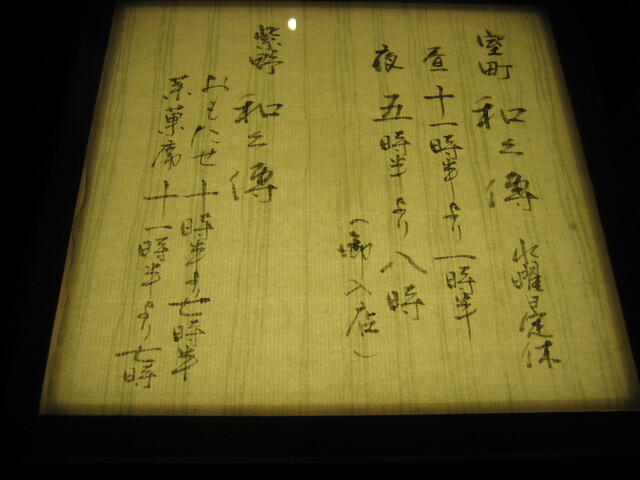 室町 和久傳 水曜定休
昼 十一時半より一時半
夜 五時半より八時
(御入店)
紫野 和久傳
おもたせ 十時半より七時半
茶菓席 十一時半より七時